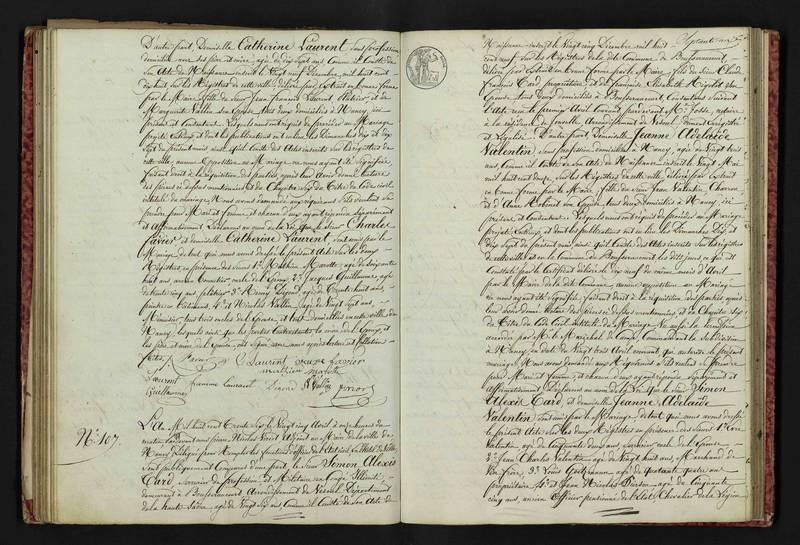 D'autre part, Demoiselle Catherine Laurent sans profession
demeurant avec ses père et mère, agée de dix sept ans Comme il Conste de
Son Acte de Naissance inscrit le Vingt neuf Décembre, mil huit cent
dix huit sur les Registres de cette ville, délivré par Extrait en bonne forme
par le Maire, fille de Sieur Jean François Laurent
Marguerite Vallin son Epouse, tous deux domiciliés à Nancy, ici
présens et Consentans. Lesquels nous ont requis de procéder au Mariage
projeté Entre eux et dont les publications ont eu lieu les Dimanches dix et dix
Sept du présent mois ainsi qu'il Conste des Actes inscrits sur les registres de
cette ville, aucune Opposition au Mariage ne nous ayant été Signifiée
faisant droit à la réquisition des parties, après leur avoir donné lecture
des pièces ci dessus mentionnées et du Chapitre Six du Titre du Code civil
intitulé du mariage, Nous avons demandé aux requérans s'ils veulent se
prendre pour Mari et femme, et chacun d'eux ayant répondu Séparément
et Affirmativement Déclarons au nom de la Loi que le Sieur Charles
Favier et demoiselle Catherine Laurent sont unis par le
Mariage, de tout quoi nous avons dressé le présent Acte Sur les deux
Registres en présence des Sieurs 1° Mathieu Marotte agé de Soixante
huit ans, 2° Jacques Guillaume, agé
de trente cinq ans 3° Henry agé de Trente huit ans,
et 4° Nicolas Vallin, agé de Vingt sept ans,
Nancy, lesquels ainsi que les parties Contractantes
les père et mère ont signé avec nous après lecture et
Favier C Laurent
mathieu marotte
Laurent
Guillaume
N° 107.
L'an Mil huit cent Trente Six le Vingt cinq Avril à onze heures du
matin pardevant nous Pierre Nicolas Adjoint au Maire de la ville de
Nancy Délégué pour remplir les fonctions d'officier de l'Etat civil
Sont publiquement Comparus d'une part, le Sieur Simon Alexis
Card, de profession et Militaire en Congé Illimité
demeurant à Bouhssencourt Arrondissement de Vesoul Département
de la haute Saône, agé de Vingt Six ans Comme il Conste de son Acte de
Naissance inscrit le Vingt cinq Décembre mil huit
cent neuf sur les Registres de la dite Commune de
délivré par Extrait en bonne forme par le Maire, fils du Sieur Claude
François Card propriétaire et de Françoise Elisabeth
Conjoints tous deux domiciliés à Consentans suivant
Acte reçu le premier Avril Courant notaire
à la résidence de Arrondissement de Vesoul
et Légalisé D'autre part Demoiselle Jeanne Adelaide
Valentin sans profession, domiciliée à Nancy, agée de Vingt trois
ans, Comme il Conste de son Acte de Naissance inscrit le Vingt Mai
mil huit cent douze sur les Registres de cette ville, délivré par Extrait
en bonne forme par le Maire, fille du Sieur Jean Valentin, Charron
et d'Anne son Epouse, tous deux domiciliés à Nancy, ici
présens et Consentans. Lesquels nous ont requis de procéder au Mariage
projeté Entre eux et dont les publications ont eu lieu les Dimanches Dix et
Dix Sept du présent mois ainsi qu'il Conste des Actes inscrits sur les registres
de cette ville et en la Commune de les dits jours ce qui est
Constaté par le Certificat délivré le dix neuf du même mois d'Avril
par le Maire de la dite Commune aucune opposition au Mariage
ne nous ayant été Signifiée, faisant droit à la réquisition des parties, après
leur avoir donné lecture des pièces ci dessus mentionnées et du Chapitre Six
du Titre du Code Civil intitulé du Mariage, la permission
accordée par M. le Maréchal de Camp, Commandant la Subdivision
à Nancy en date du Vingt trois Avril courant, qui autorise le présent
mariage, Nous avons demandé aux Requérans s'ils veulent se prendre
pour Mari et femme, et chacun d'eux ayant répondu Séparément et
Affirmativement Déclarons au nom de la Loi que le Sieur Simon
Alexis Card, et demoiselle Jeanne Adelaide
Valentin sont unis par le Mariage, de tout quoi nous avons dressé
le présent Acte Sur les deux Registres en présence des Sieurs 1°
Valentin agé de Cinquante deux ans,
2° Jean Charles Valentin agé de Vingt huit ans Marchand de
3° Louis agé de quarante quatre ans
propriétaire, 4° et Jean Nicolas agé de Cinquante
cinq ans, ancien Officier pensionné de l'Etat Chevalier de la Légion